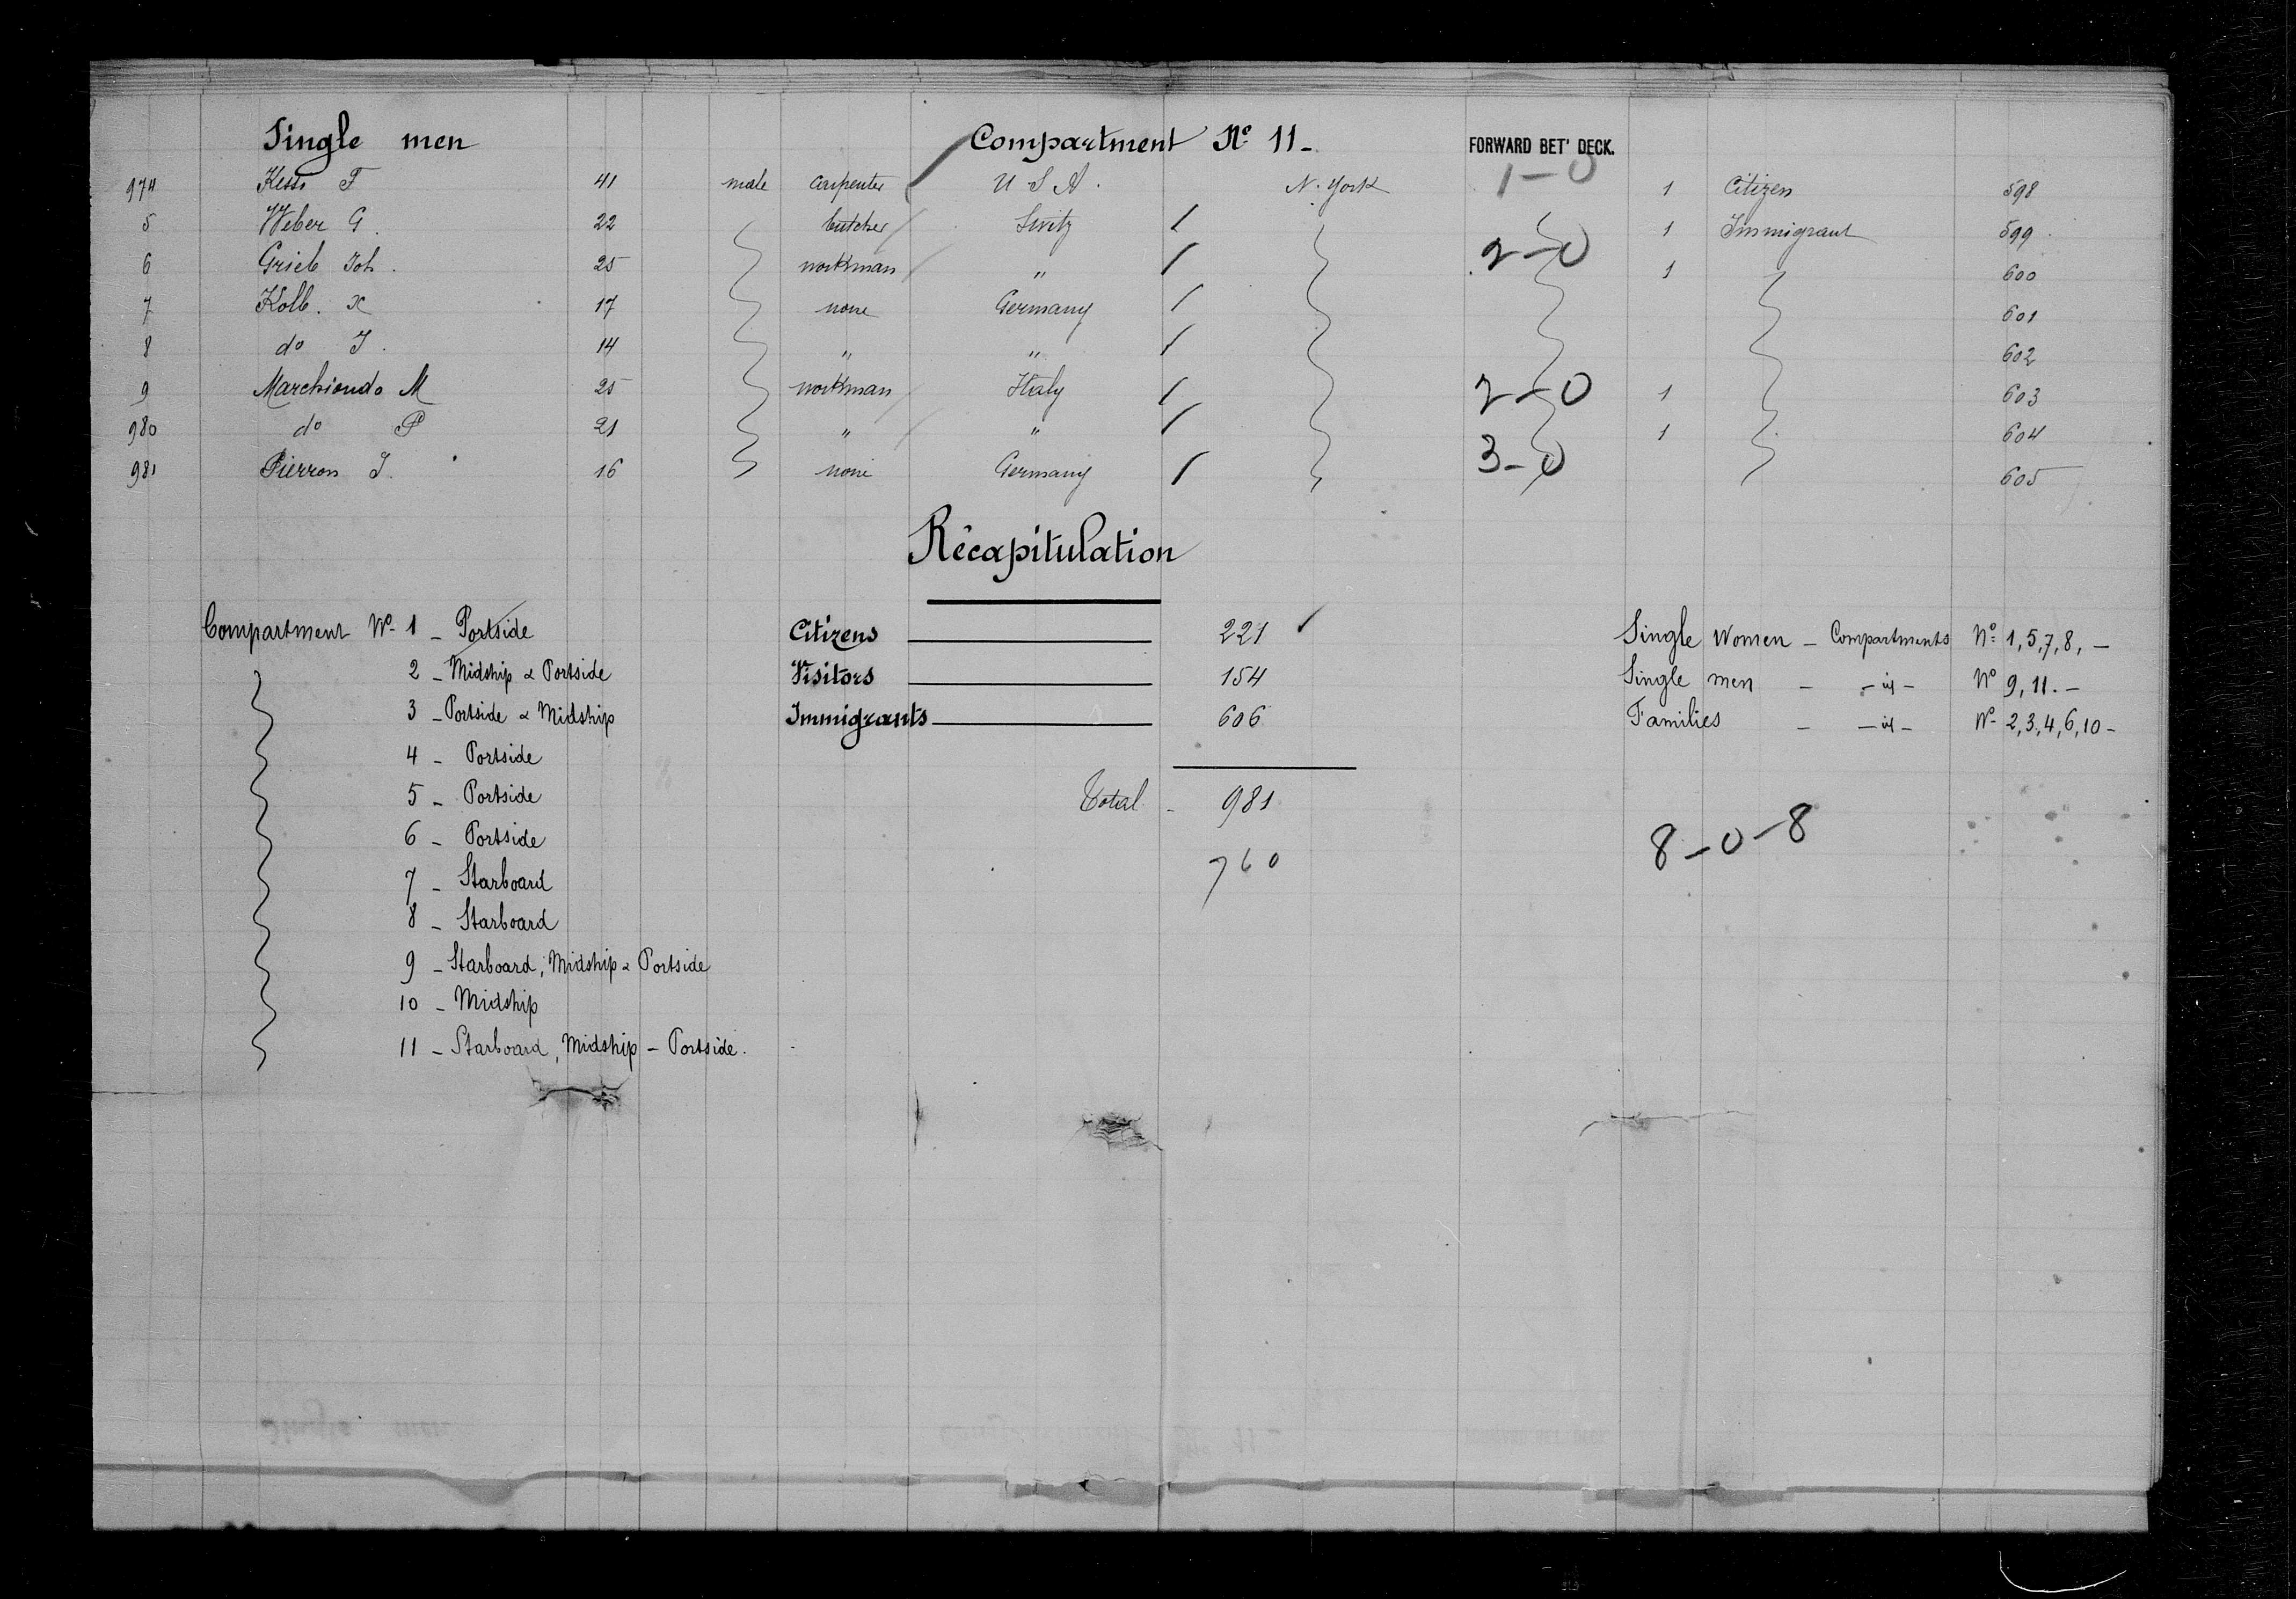 Single men Compartment Nº 11 - FORWARD BET' DECK.
974 Kess F 41 male carpenter U S A. N. York 1-0 1 Citizen 598
5 Weber G. 22 butcher Switz / 1 Immigrant 599
6 Grieb Joh. 25 workman " / 2-0 1 600
7 Kolb. X 17 none Germany / 601
8 do J. 14 " " / 602
9 Marchiondo M 25 workman Italy / 2-0 1 603
980 do P 21 " " / 1 604
981 Pierron J. 16 none Germany / 3-0 605
Récapitulation
Compartment Nº 1 - Portside Citizens 221 Single Women - Compartments Nº 1, 5, 7, 8, -
2 - Midship & Portside Visitors 154 Single men - - id - Nº 9, 11. -
3 - Portside & Midship Immigrants 606 Families - - id - Nº 2, 3, 4, 6, 10 -
4 - Portside
5 - Portside Total - 981
6 - Portside 8-0-8
7 - Starboard 760
8 - Starboard
9 - Starboard, Midship & Portside
10 - Midship
11 - Starboard, Midship - Portside.